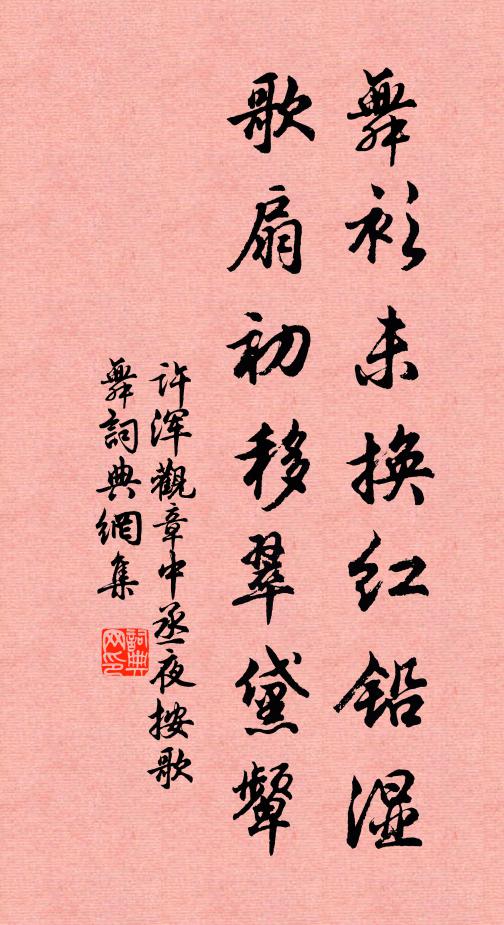 舞衫未换红铅湿
歌扇初移翠黛颦
许浑觀章中丞夜按歌
舞詞典網集
詞典网印